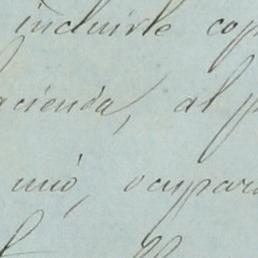 incluirle cop
acienda, al p
mió, ocupar